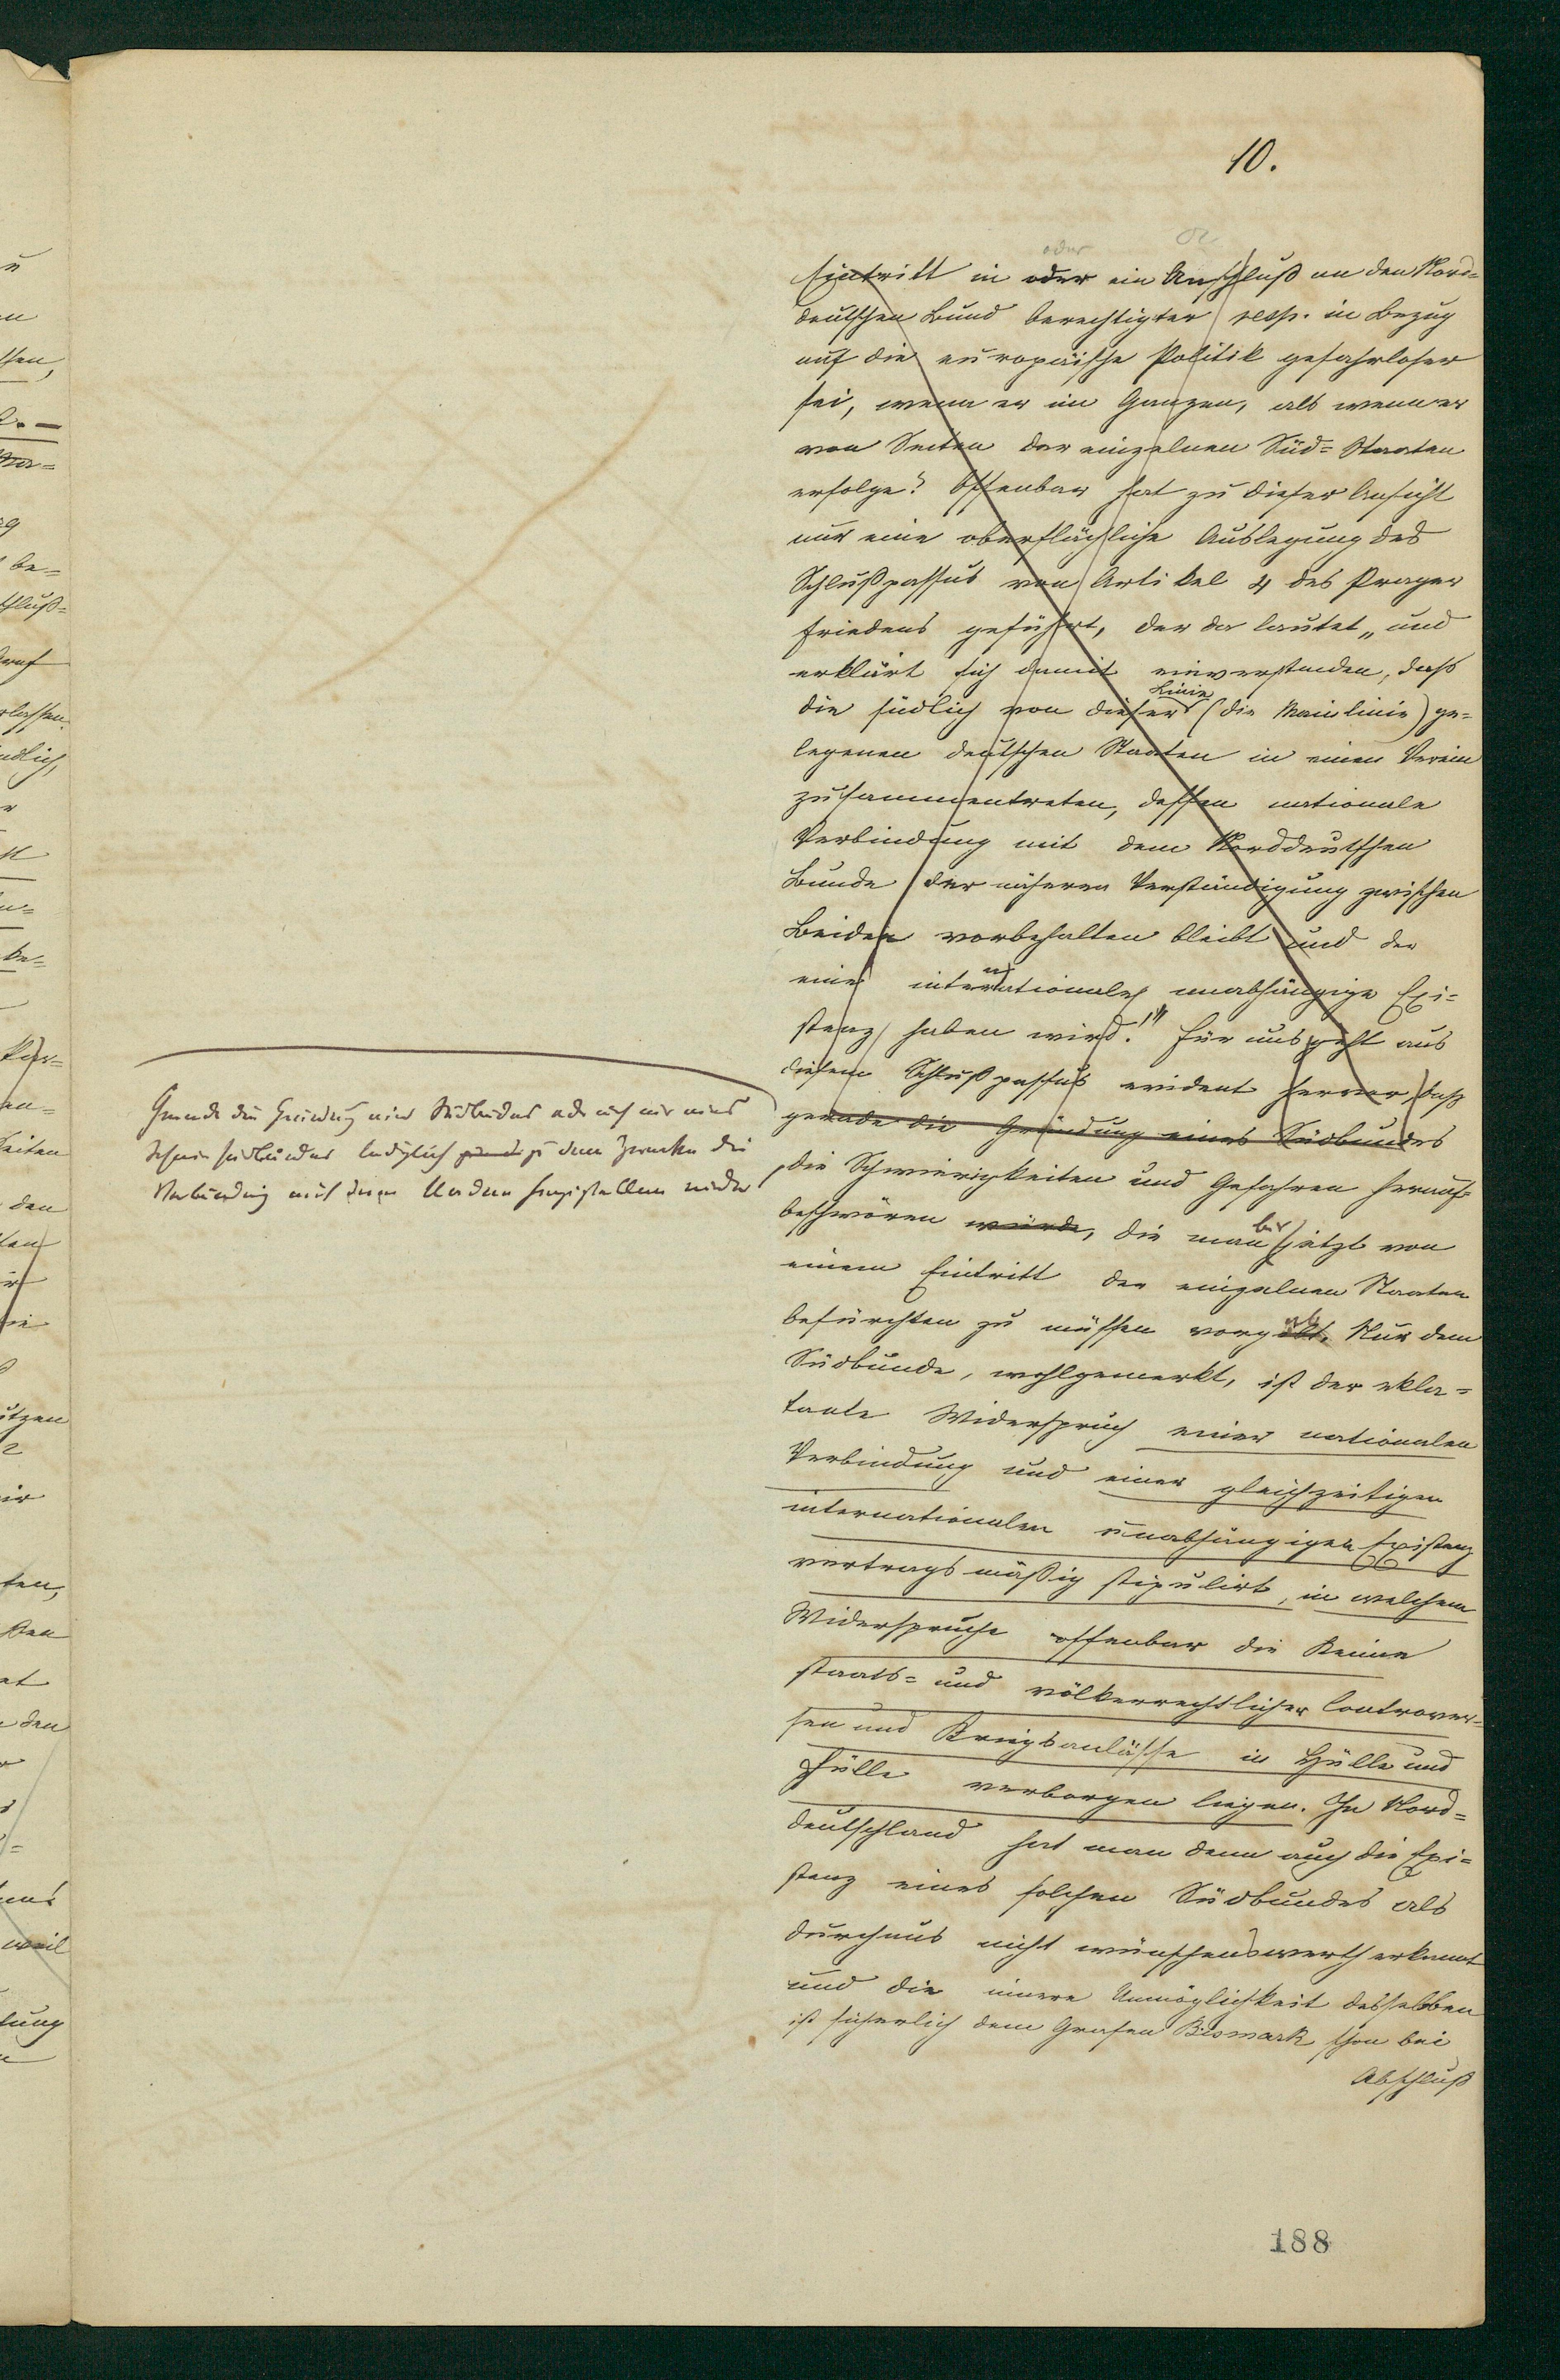 10.
oder
Eintritt in oder ein Anschluß an den Nord=
deutschen Bund berechtigter resp. in Bezug
auf die europäische Politik gefahrloser
sei, wenn er im Ganzen, als wenn er
von Seiten der einzelnen Süd=Staaten
erfolge? Offenbar hat zu dieser Ansicht
nur eine oberflächliche Auslegung des
Schlußpassus von Artikel 4 des Prager
Friedens geführt, der da lautet „und
erklärt sich damit einverstanden, daß
die südlich von dieser Linie (die Mainlinie) ge=
legenen deutschen Staaten in einen Verein
zusammentreten, dessen nationale
Verbindung mit dem Norddeutschen
Bunde der näheren Verständigung zwischen
Beiden vorbehalten bleibt und der
eine internationale unabhängige Exi=
stenz haben wird.!" Für uns geht aus
diesem Schlußpassus evident hervor, daß
gerade die Gründung eines Südbundes
Gerade die Gründung eines Südbundes oder auch nur eines
Südbundes lediglich zu dem Zwecke die
Verbindung mit dem Norden herzustellen würde
die Schwierigkeiten und Gefahren herauf=
beschwören würde, die man bis jetzt von
einem Eintritt der einzelnen Staaten
befürchten zu müssen vorgab. Nur dem
Südbunde, wohlgemerkt, ist der ekla=
tante Widerspruch einer nationalen
Verbindung und einer gleichzeitigen
internationalen unabhängigen Existenz
vertragsmäßig stipulirt, in welchem
Widerspruche offenbar die Keime
staats= und völkerrechtlicher Controver=
sen und Kriegsanlässe in Hülle und
Fülle verborgen liegen. In Nord=
deutschland hat man denn auch die Exi=
stenz eines solchen Südbundes als
durchaus nicht wünschenswerth erkannt
und die innere Unmöglichkeit desselben
ist sicherlich dem Grafen Bismark schon bei
Abschluß
188